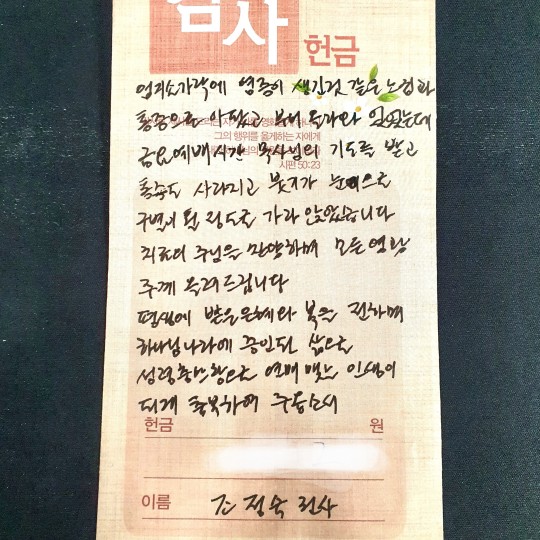 감사 헌금
엄지손가락에 염증이 생긴것 같은 노검파
통증으로 아팠고 부어 올라와 있었는데
그의 행위를 옳게하는 자에게
시편 50:23
금요예배시간 목사님의 기도를 받고
통증도 사라지고 붓기가 눈으로
구별이 될 정도로 가라 앉았습니다
치료의 주님을 찬양하며 모든 영광
주께 올려드립니다
평생에 받은 은혜와 복을 전하며
하나님나라에 증인된 삶으로
성령충만함으로 열매 맺는 인생이
되게 축복하여 주옵소서
헌금 원
이름 조정숙 권사